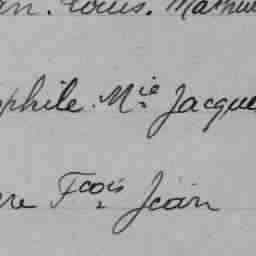 an. Louis. Mathu
phile. Mie Jacque
re Fcois Jean